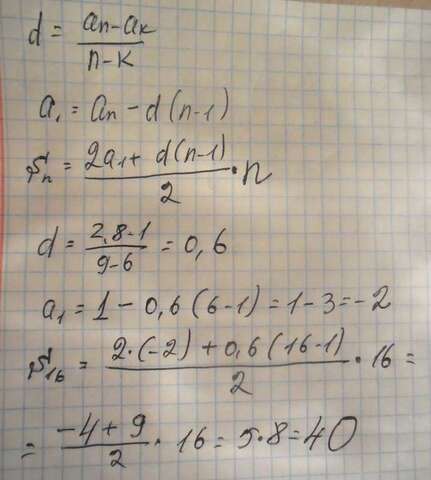 d = (aₙ - aₖ)/(n - k)
a₁ = aₙ - d(n-1)
Sₙ = (2a₁ + d(n-1))/2 · n
d = (2,8-1)/(9-6) = 0,6
a₁ = 1 - 0,6(6-1) = 1-3 = -2
S₁₆ = (2·(-2) + 0,6(16-1))/2 · 16 =
= (-4+9)/2 · 16 = 5·8 = 40